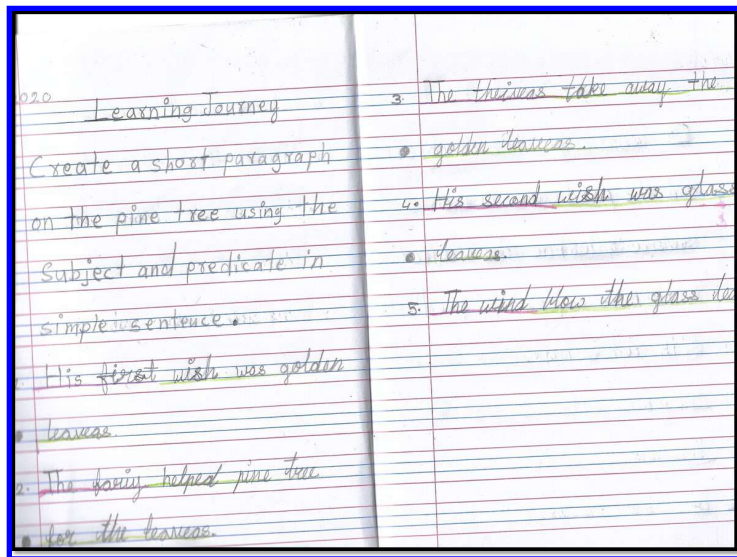 020
Learning Journey
Create a short paragraph
on the pine tree using the
subject and predicate in
simple sentence.
1. His first wish was golden
leaveas.
2. The fariy helped pine tree
for the leaveas.
3. The theiveas take away the
golden leaveas.
4. His second wish was glass
leaveas.
5. The wind blow the glass lea